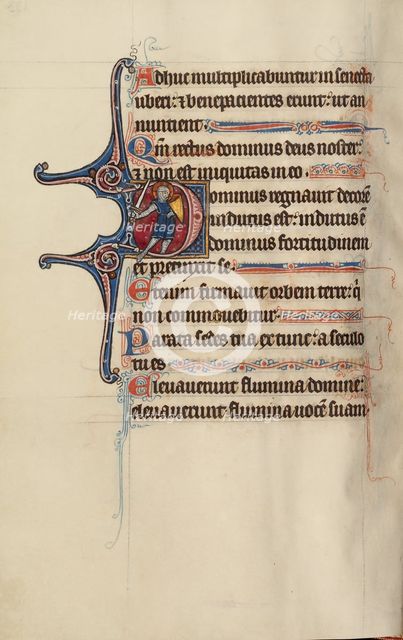 Adhuc multiplicabuntur in senecta
uberi: & bene pacientes erunt: ut an
nuntient.
Qm rectus dominus deus noster:
& non est iniquitas in eo.
Dominus regnauit decorē
indutus est: indutus ē
dominus fortitudinem
et precinxit se.
Etenim firmauit orbem terre: q̄
non commouebitur.
Parata sedes tua, ex tunc: a seculo
tu es.
Eleuauerunt flumina domine:
eleuauerunt flumina uocē suam.
Heritage Images